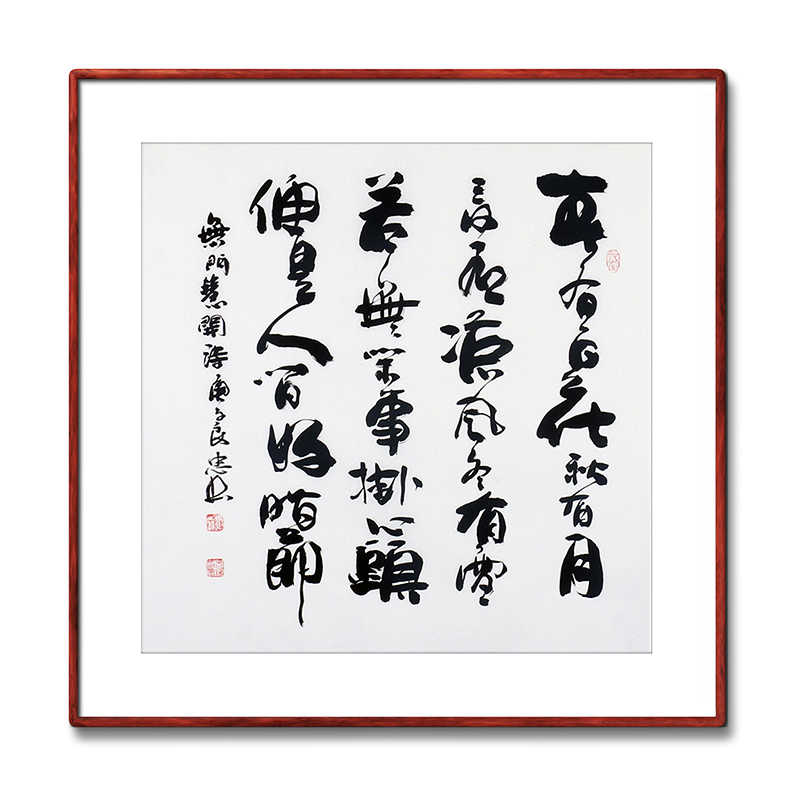 春有百花秋有月
夏有涼風冬有雪
若無閑事掛心頭
便是人間好時節
無門慧開詩庚子良忠書